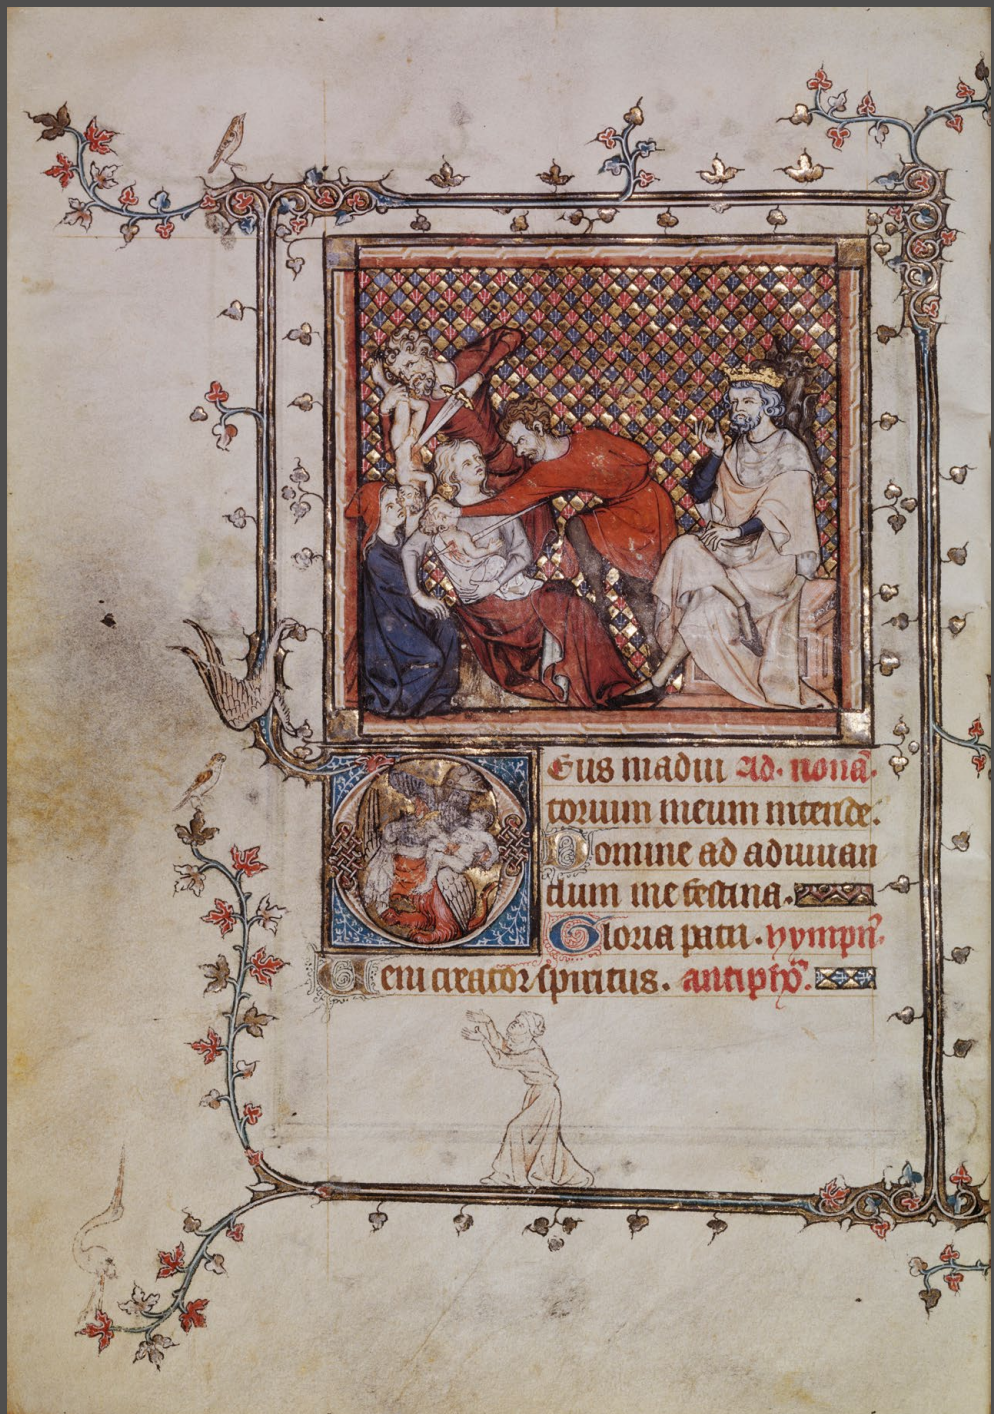 Deus in adiu. Ad. nona.
torium meum intende.
Domine ad adiuuan
dum me festina.
Gloria patri. hympn.
Veni creator spiritus. antiph.